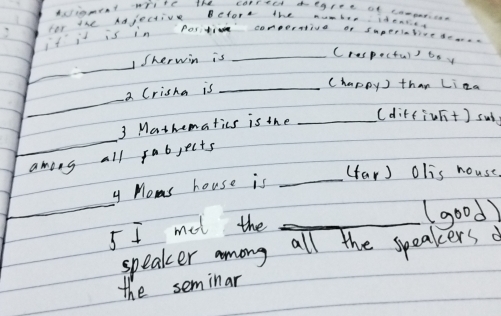 Assignment write the correct degree of comparison
for the Adjective Before the number identify
if it is in Positive comperative or superlative degree
1 Sherwin is ________ (respectul) boy
2 Crisha is ________ (happy) than Liza
3 Mathematics is the ________ (difficult)
among all subjects
4 Moms house is ________ (far) house.
5 I met the ________ (good)
speaker among all the speakers
the seminar